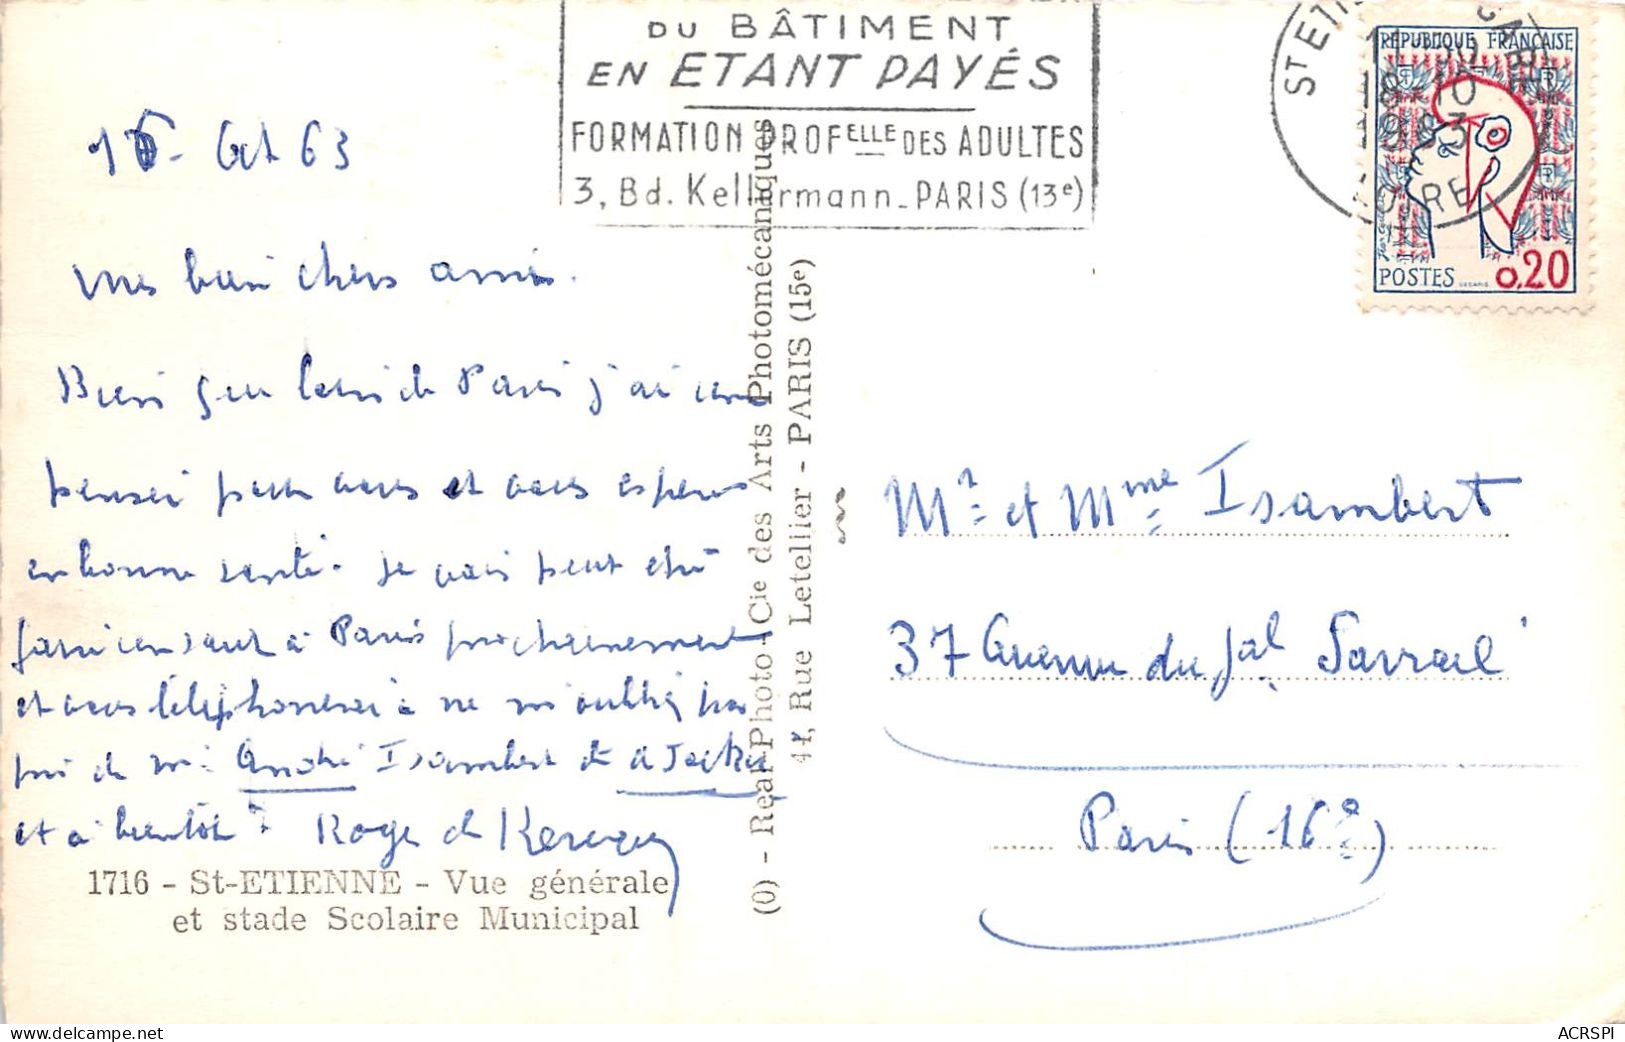 DU BÂTIMENT
EN ETANT PAYÉS
FORMATION PROFELLE DES ADULTES
3, Bd. Kellermann - PARIS (13e)
ST ETIENNE GARE
18-10
1963
LOIRE
REPUBLIQUE FRANÇAISE
POSTES 0,20
DECARIS
Oct 63
Mes bien chers amis.
Bien que loin de Paris j'ai
penser pour vous et vous espère
en bonne santé. Je vais peut etre
à Paris prochainement
et vous téléphonerai à ne m'oublié pas
de Mr André Isambert et à Jackie
et à bientôt. Roger de
1716 - St-ETIENNE - Vue générale
et stade Scolaire Municipal
(O) - Real-Photo - Cie des Arts Photomécaniques
44, Rue Letellier - PARIS (15e)
Mr et Mme Isambert
37 Avenue du Gal Sarrail
Paris (16e)
www.delcampe.net
ACRSPI